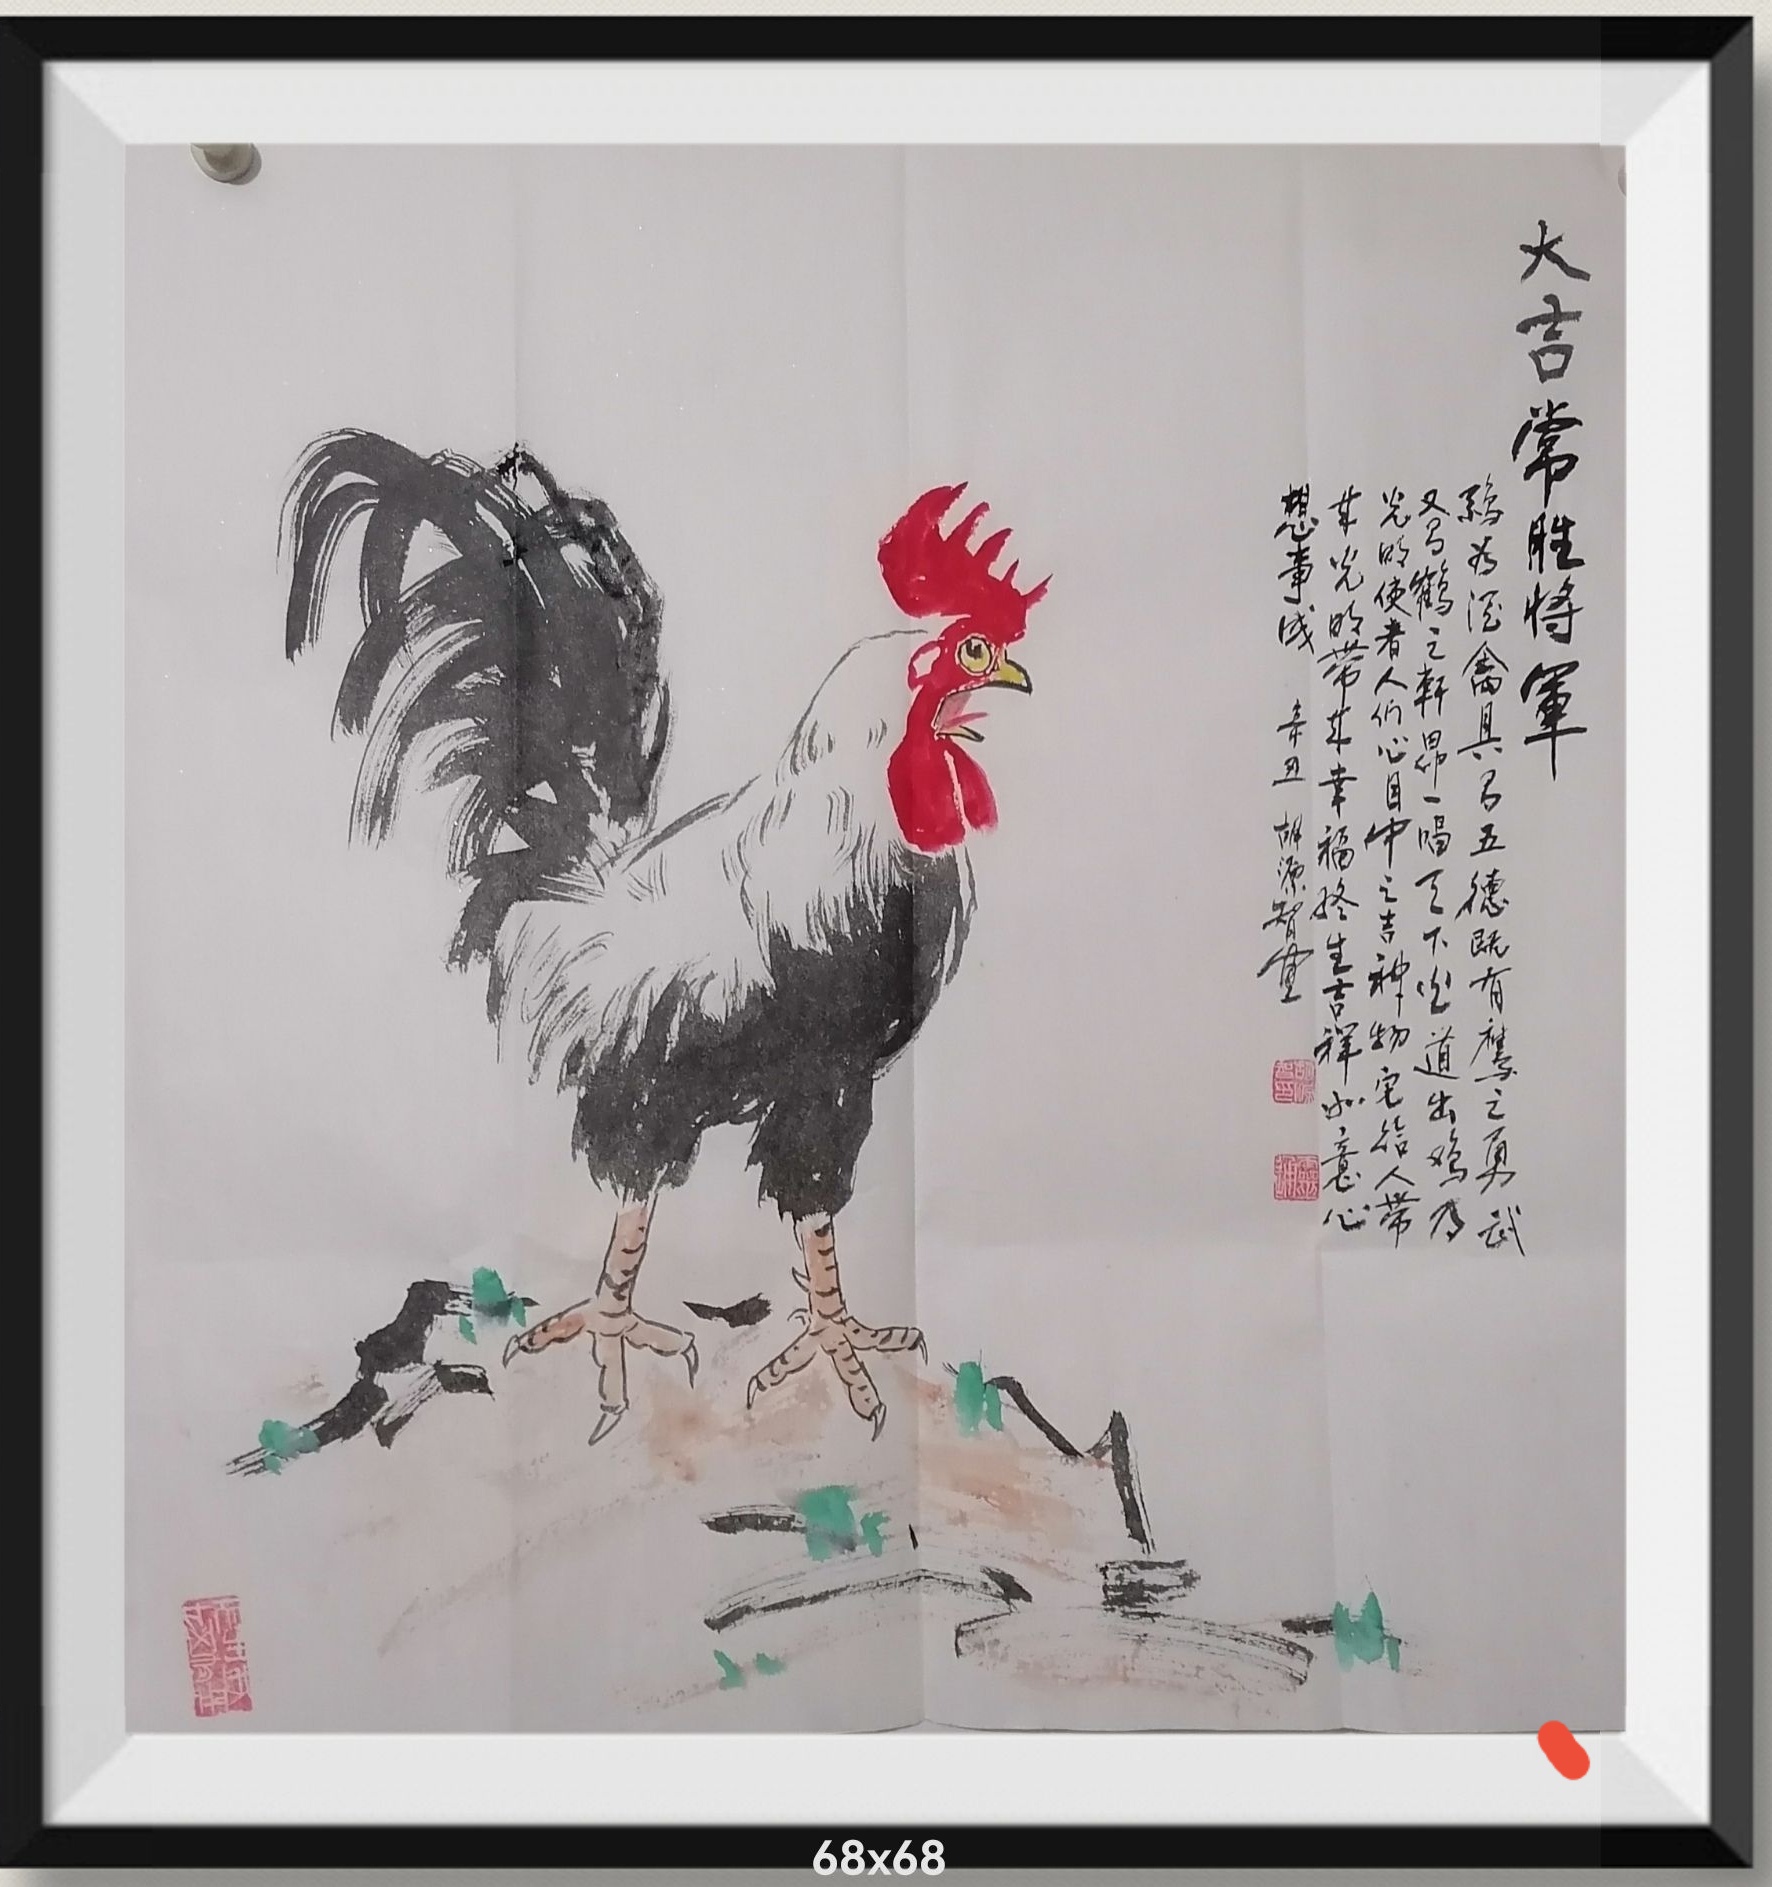 大吉常胜将軍
鷄为禽具有五德既有鹰之勇武
又有鹤之軒昂一唱天下道出鸡为
光明使者人们心目中之吉神物它给人带
来光明带来幸福终生吉祥如意心
想事成 辛丑 胡源智画
68x68